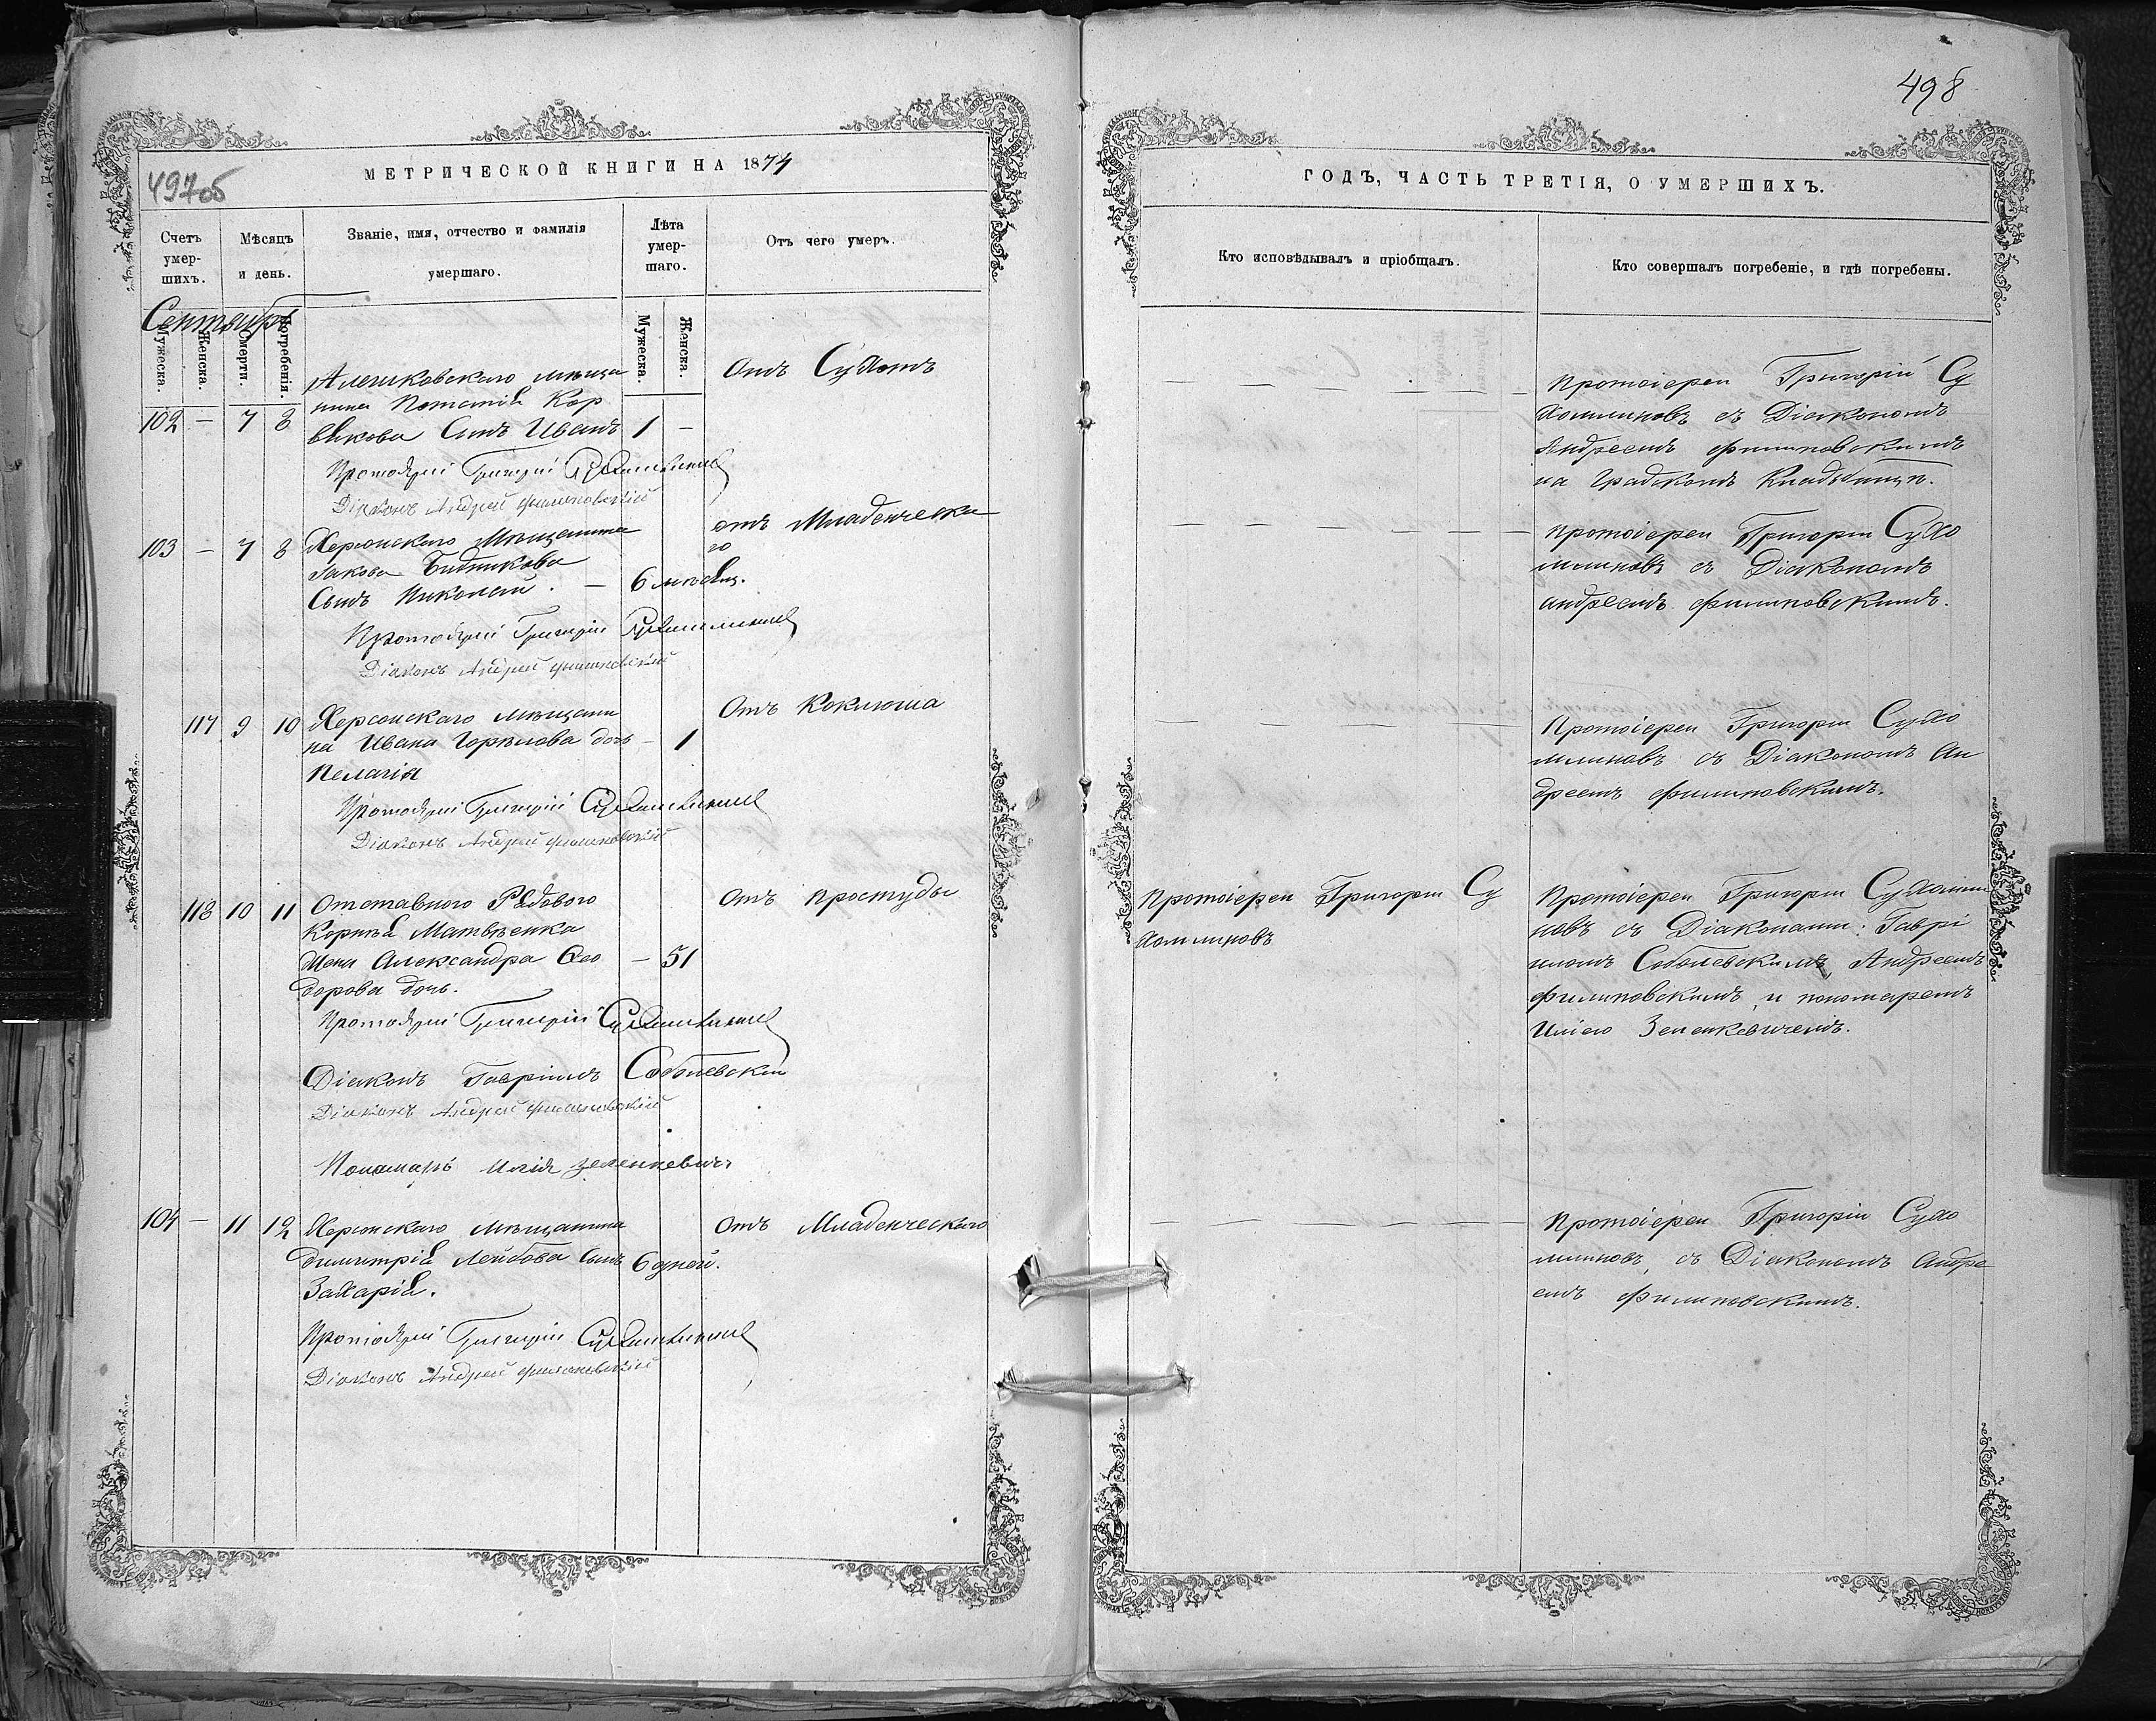 497об
МЕТРИЧЕСКОЙ КНИГИ НА 1874
Счетъ умер-шихъ.
Мѣсяцъ и день.
Званіе, имя, отчество и фамилія умершаго.
Лѣта умер-шаго.
Отъ чего умеръ.
Сентябрь
Мужеска.
Женска.
Смерти.
Погребенія.
Мужеска.
Женска.
Алешковскаго мѣща Отъ Сухотъ
нина Потапія Кор
102 — 7 8 Сынъ Иванъ 1 —
Протоіерей Григорій Сухомлиновъ
Діаконъ Андрей Филиповскій
103 — 7 8 Херсонскаго Мѣщанина отъ Младенческа
го
Іакова Битникова
Сынъ Николай. — 6 мѣсяц.
Протоіерей Григорій Сухомлиновъ
Діаконъ Андрей Филиповскій
117 9 10 Херсонскаго мѣщани Отъ Коклюша
на Ивана Горѣлова дочь — 1
Пелагія
Протоіерей Григорій Сухомлиновъ
Діаконъ Андрей Филиповскій
118 10 11 Отставного Рядового Отъ простуды
Корнѣя Матвѣенка
жена Александра Ѳео — 51
дорова дочь.
Протоіерей Григорій Сухомлиновъ
Діаконъ Гавріилъ Соболевскій
Діаконъ Андрей Филиповскій
Пономарь Илія Зеленкевичъ
104 — 11 12 Херсонскаго мѣщанина Отъ Младенческаго
Димитрія Лейбова сынъ 6 дней.
Захарія.
Протоіерей Григорій Сухомлиновъ
Діаконъ Андрей Филиповскій
498
ГОДЪ, ЧАСТЬ ТРЕТІЯ, О УМЕРШИХЪ.
Кто исповѣдывалъ и пріобщалъ.
Кто совершалъ погребеніе, и гдѣ погребены.
— — — — — Протоіерей Григорій Су
хомлиновъ съ Діакономъ
Андреемъ Филиповскимъ
на Градскомъ Кладбищѣ.
— — — — — Протоіерей Григорій Сухо
млиновъ съ Діакономъ
Андреемъ Филиповскимъ.
— — — — — Протоіерей Григорій Сухо
млиновъ съ Діакономъ Ан
дреемъ Филиповскимъ.
Протоіерей Григорій Су
хомлиновъ
Протоіерей Григорій Сухомли
новъ съ Діаконами: Гаврі
иломъ Соболевскимъ, Андреемъ
Филиповскимъ, и пономаремъ
Иліею Зеленкевичемъ.
— — — — — Протоіерей Григорій Сухо
млиновъ, съ Діакономъ Андре
емъ Филиповскимъ.